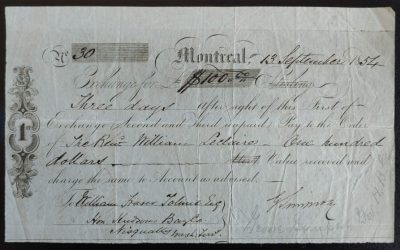 No 30 Montreal, 13 September 1854
Exchange for $100.00 Sterling
Three days after sight of this First of
Exchange (Second and Third unpaid) Pay to the Order
of The Revd William Leclaire - One hundred
dollars - Value received and
charge the same to Account as advised.
1st
To William Fraser Tolmie Esq
Hon Hudsons Bay Co
Nisqually Wash. Terr.